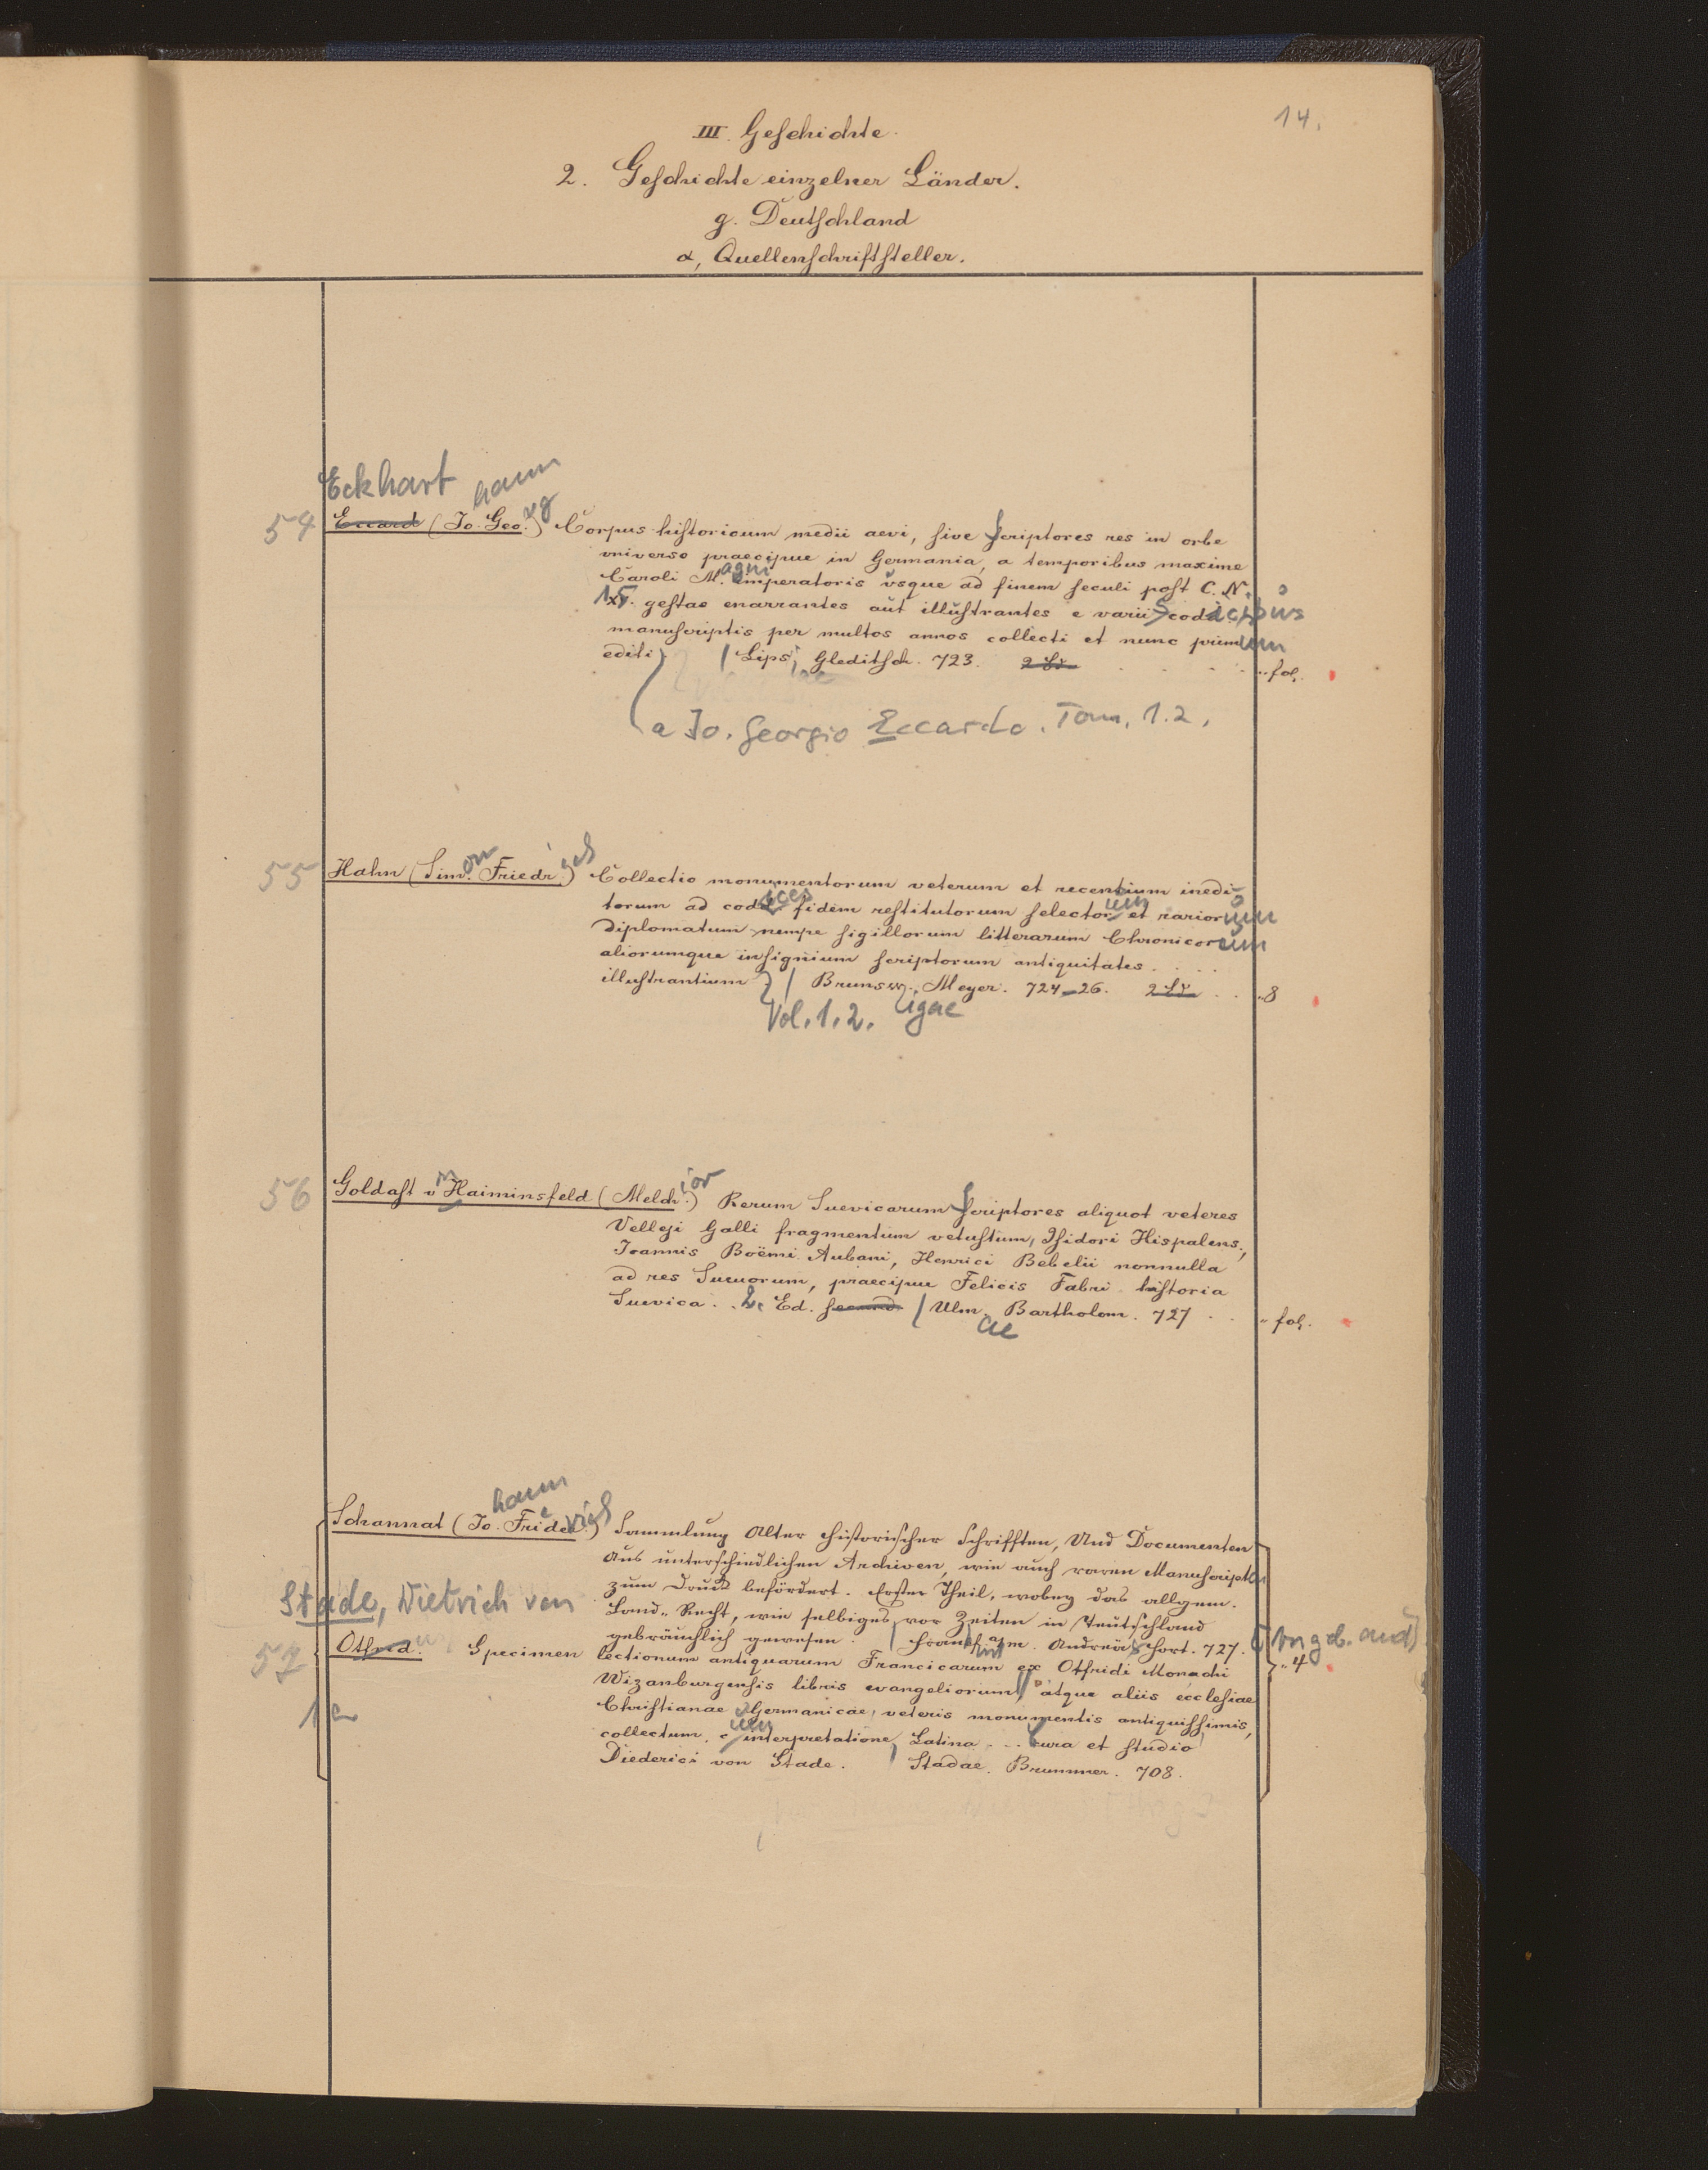 14.
III. Geschichte.
2. Geschichte einzelner Länder.
g. Deutschland
α, Quellenschriftsteller.
Eckhart hann
54 Eccard (Jo. Geo.) rg Corpus historicum medii aevi, sive Scriptores res in orbe
vniverso praecipue in Germania, a temporibus maxime
Caroli M.agni imperatoris vsque ad finem seculi post C. N.
XV. gestae enarrantes aut illustrantes e variis codicibus
manuscriptis per multos annos collecti et nunc primum
editi / Lips., Gleditsch. 723. 2 Lr. " fol.
a Jo. Georgio Eccardo. Tom. 1.2.
55 Hahn (Simon Friedrich) Collectio monumentorum veterum et recentium inedi-
torum ad codices fidem restitutorum selectorum et rariorum
Diplomatum nempe sigillorum litterarum Chronicorum
aliorumque insignium scriptorum antiquitates . . . .
illustrantium / Brunsw., Meyer. 724-26. 2 Lr. . . " 8
Vol. 1. 2. igae
56 Goldast v. Haiminsfeld (Melchior) Rerum Suevicarum Scriptores aliquot veteres
Velleji Galli fragmentum vetustum, Isidori Hispalens.,
Joannis Boëmi Aubani, Henrici Bebelii nonnulla
ad res Sueuorum, praecipue Felicis Fabri historia
Suevica. . 2. Ed. secund. / Ulm. Bartholom. 727 . . " fol.
ae
hann
Schannat (Jo. Friederich) Sammlung Alter historischer Schrifften, Und Documenten
Aus unterschiedlichen Archiven, wie auch raren Manuscripten
zum Druck befördert. Erster Theil, wobey das allgem.
Stade, Dietrich von Land-Recht, wie selbiges vor Zeiten in Teutschland
gebräuchlich gewesen. / Frankf. a/m. Andreä & Hort. 727.
57 Otfrid. Specimen lectionum antiquarum Francicarum ex Otfridi Monachi " 4
Wizanburgensis libris evangeliorum, atque aliis ecclesiae
1 a Christianae Germanicae, veteris monumentis antiquissimis,
collectum, cum interpretatione Latina . . . cura et studio
Diederici von Stade. / Stadae. Brummer. 708.